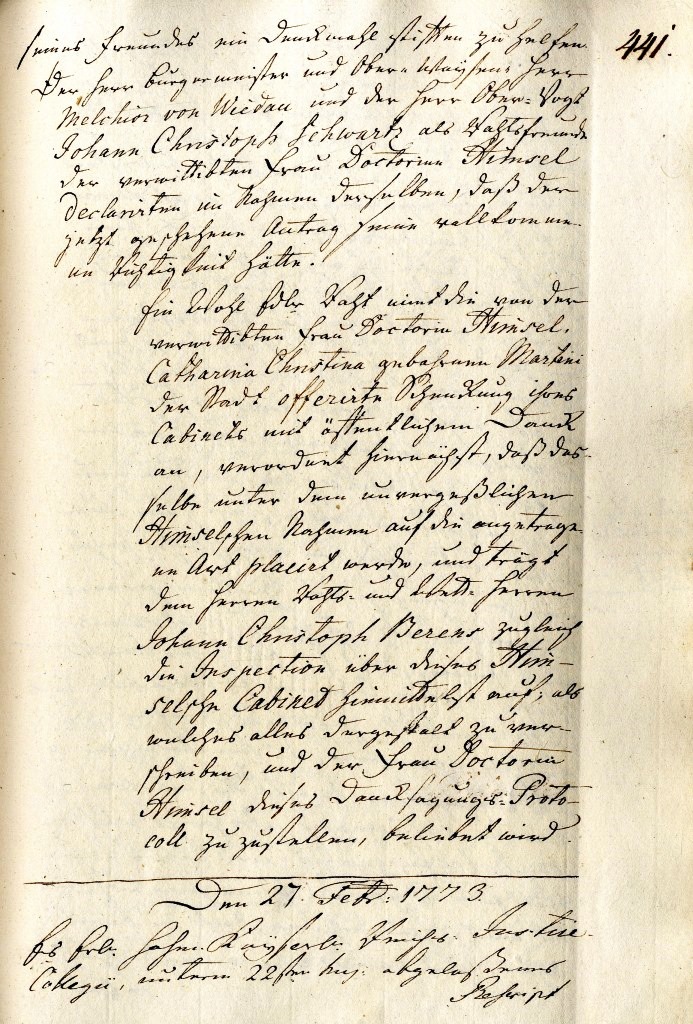 441.
seines Freundes ein Denckmahl stifften zu helfen.
Der Herr Burgermeister und Ober-Waysen-Herr
Melchior von Wiedau und der Herr Ober-Vogt
Johann Christoph Schwartz als Rahtsfreunde
der verwittibten Frau Doctorinn Himsel
declarirten im Nahmen derselben, daß der
jetzt geschehene Antrag seine vollkomme-
ne Richtigkeit hätte.
Ein Wohl Edler Raht nimt die von der
verwittibten Frau Doctorin Himsel,
Catharina Christina gebohrnen Martini
der Stadt offerirte Schenckung ihres
Cabinets mit öffentlichem Danck
an, verordnet hiernächst, daß das-
selbe unter dem unvergeßlichen
Himselschen Nahmen auf die angetrage-
ne Art placirt werde, und trägt
dem Herren Rahts- und Wett-Herren
Johann Christoph Berens zugleich
die Inspection über dieses Him-
selsche Cabinet hiemittelst auf; als
welches alles dergestalt zu ver-
schreiben, und der Frau Doctorin
Himsel dieses Dancksagungs-Proto-
coll zu zustellen, beliebet wird.
Den 27. Febr. 1773.
Es Erl. Kayserl. Reichs-Justice-
Collegii, unterm 22sten huj. abgelaßenes
Rescript